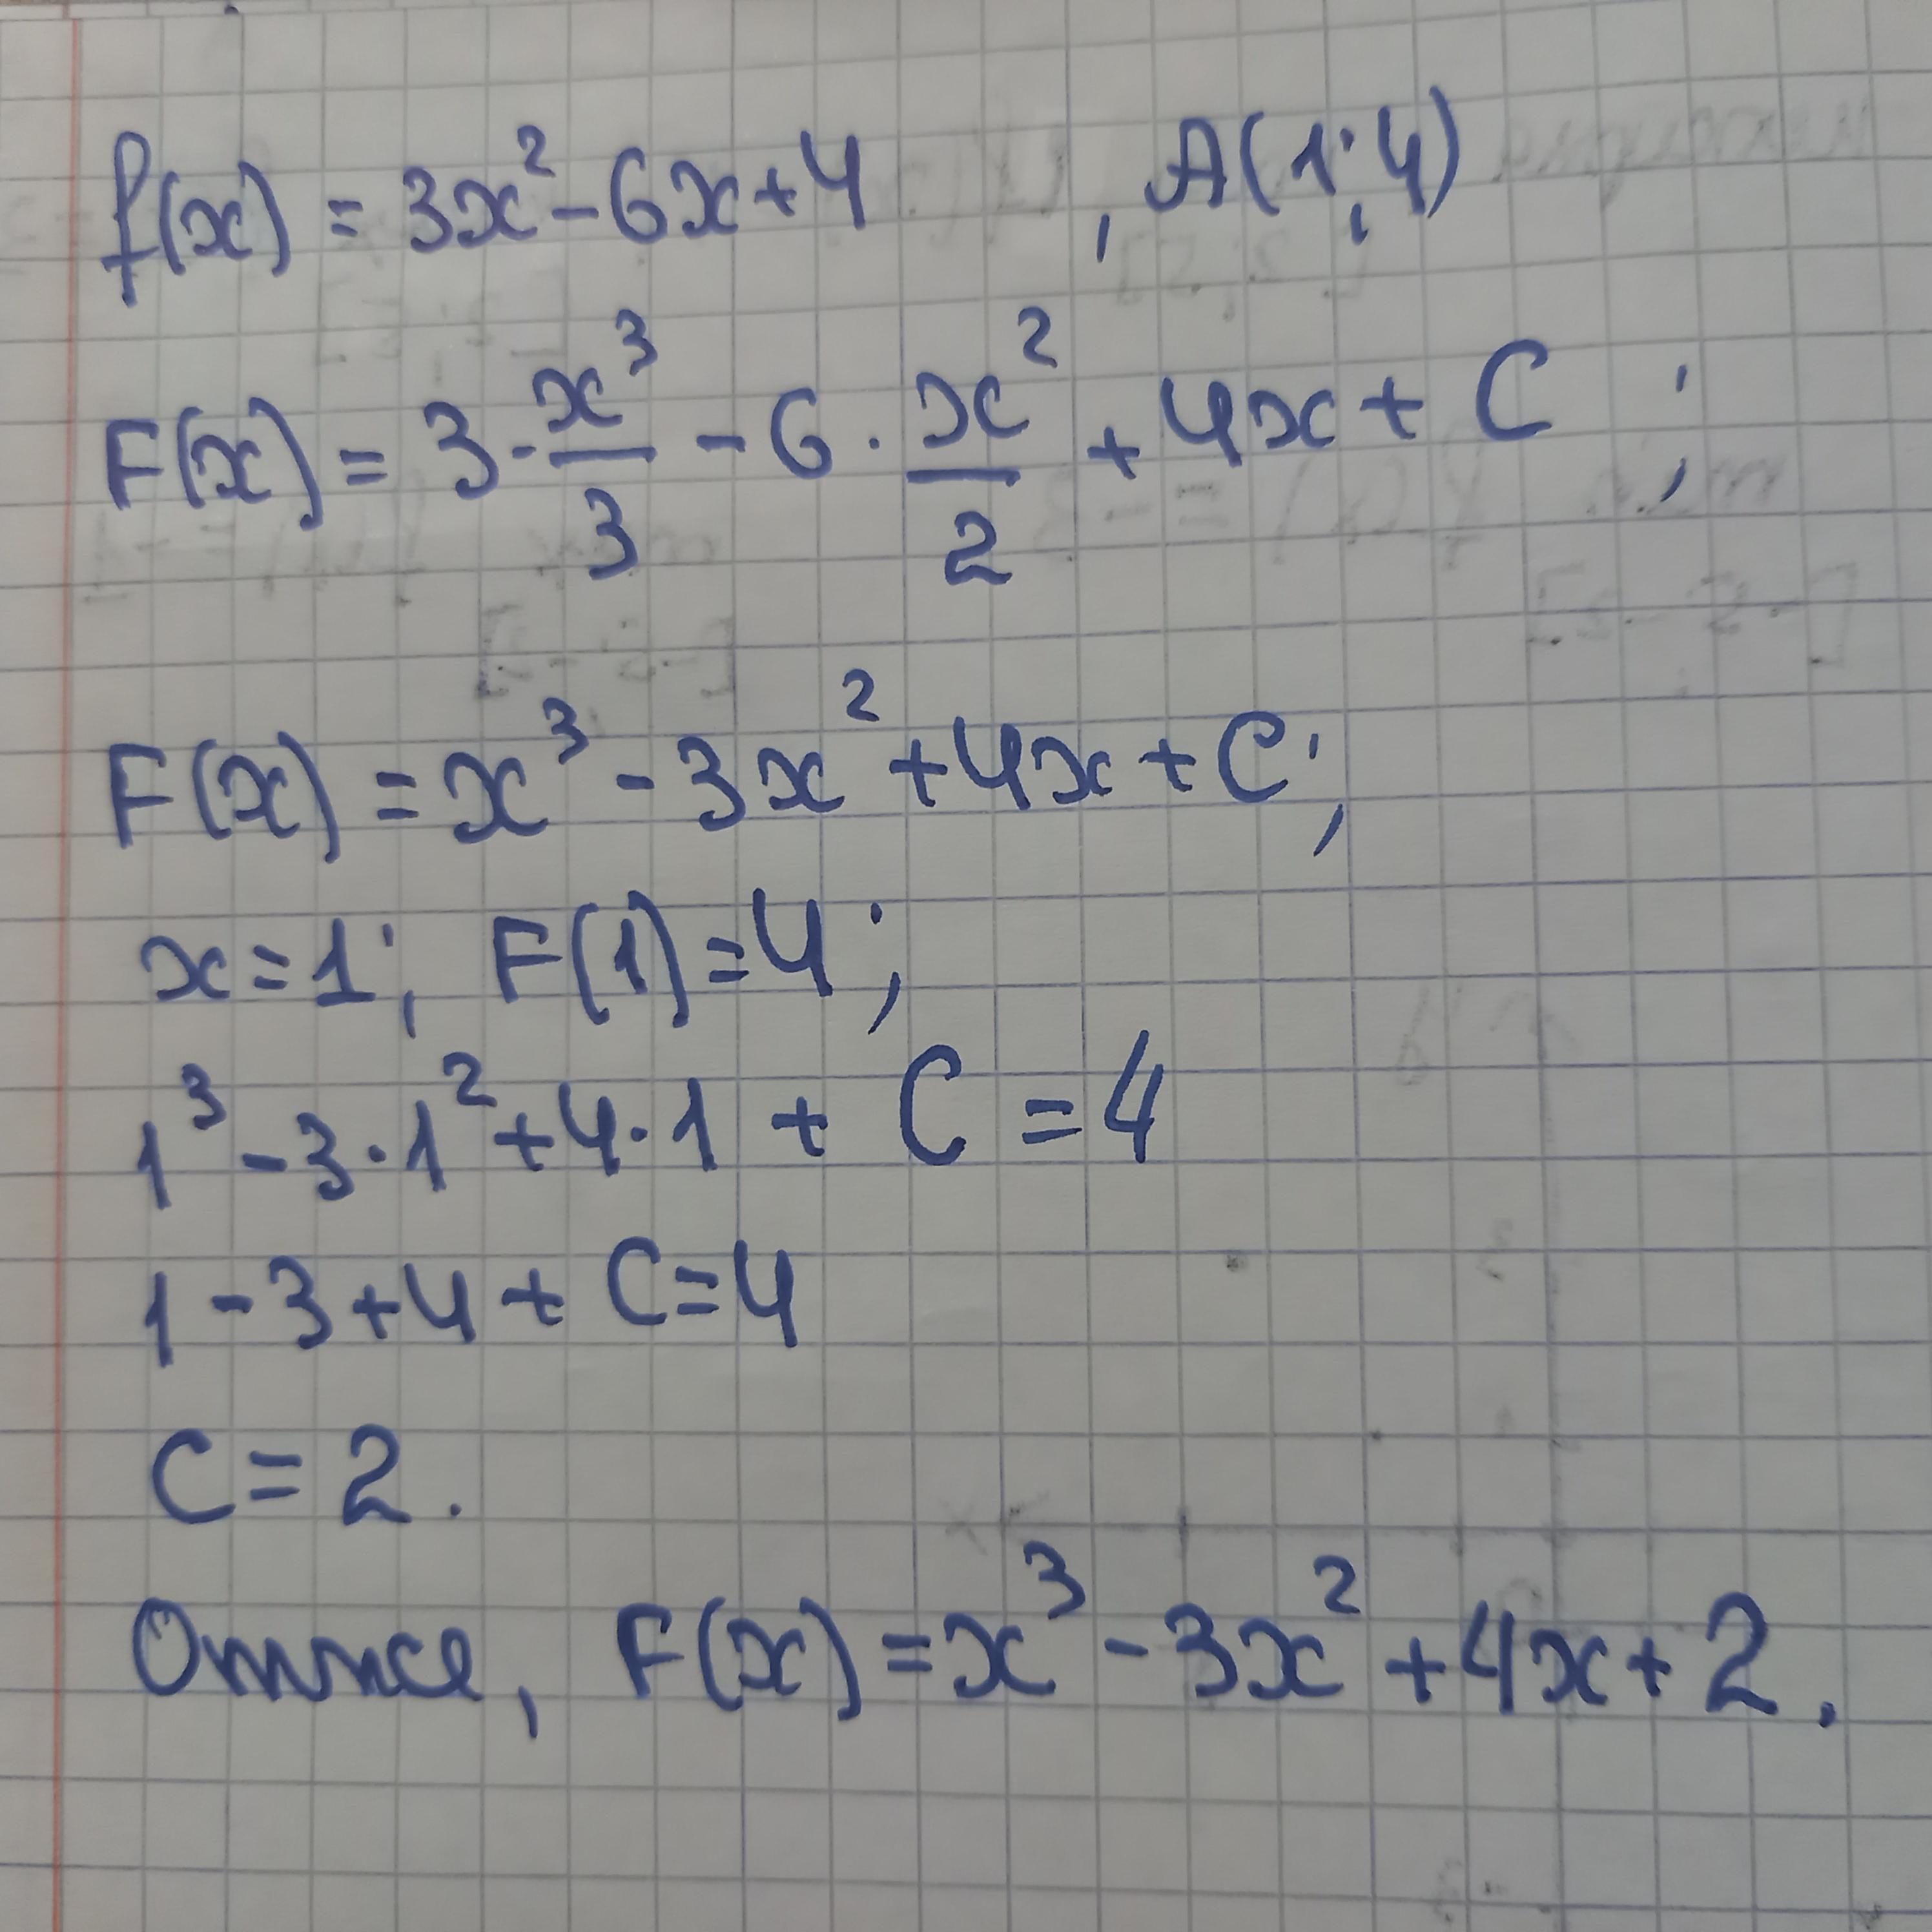 f(x) = 3x² - 6x + 4 , A(1; 4)
F(x) = 3 · x³/3 - 6 · x²/2 + 4x + C ;
F(x) = x³ - 3x² + 4x + C ;
x = 1 ; F(1) = 4 ;
1³ - 3 · 1² + 4 · 1 + C = 4
1 - 3 + 4 + C = 4
C = 2 .
Отже, F(x) = x³ - 3x² + 4x + 2 .